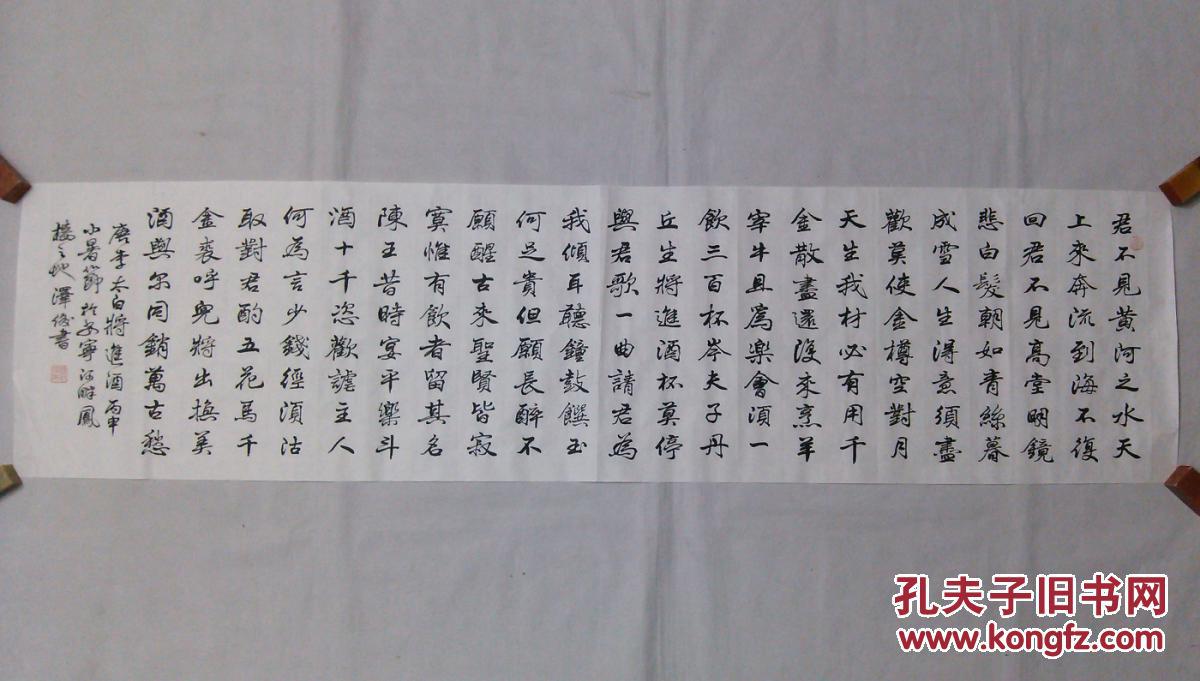 君不見黄河之水天
上來奔流到海不復
回君不見高堂明鏡
悲白髮朝如青絲暮
成雪人生得意須盡
歡莫使金樽空對月
天生我材必有用千
金散盡還復來烹羊
宰牛且爲樂會須一
飲三百杯岑夫子丹
丘生將進酒杯莫停
與君歌一曲請君為
我傾耳聽鐘鼓饌玉
何足貴但願長醉不
願醒古來聖賢皆寂
寞惟有飲者留其名
陳王昔時宴平樂斗
酒十千恣歡謔主人
何為言少錢徑須沽
取對君酌五花馬千
金裘呼兒將出換美
酒與尔同銷萬古愁
唐李太白將進酒丙申
小暑節於安寧河畔鳳
樓之地澤俊書
孔夫子旧书网
www.kongfz.com